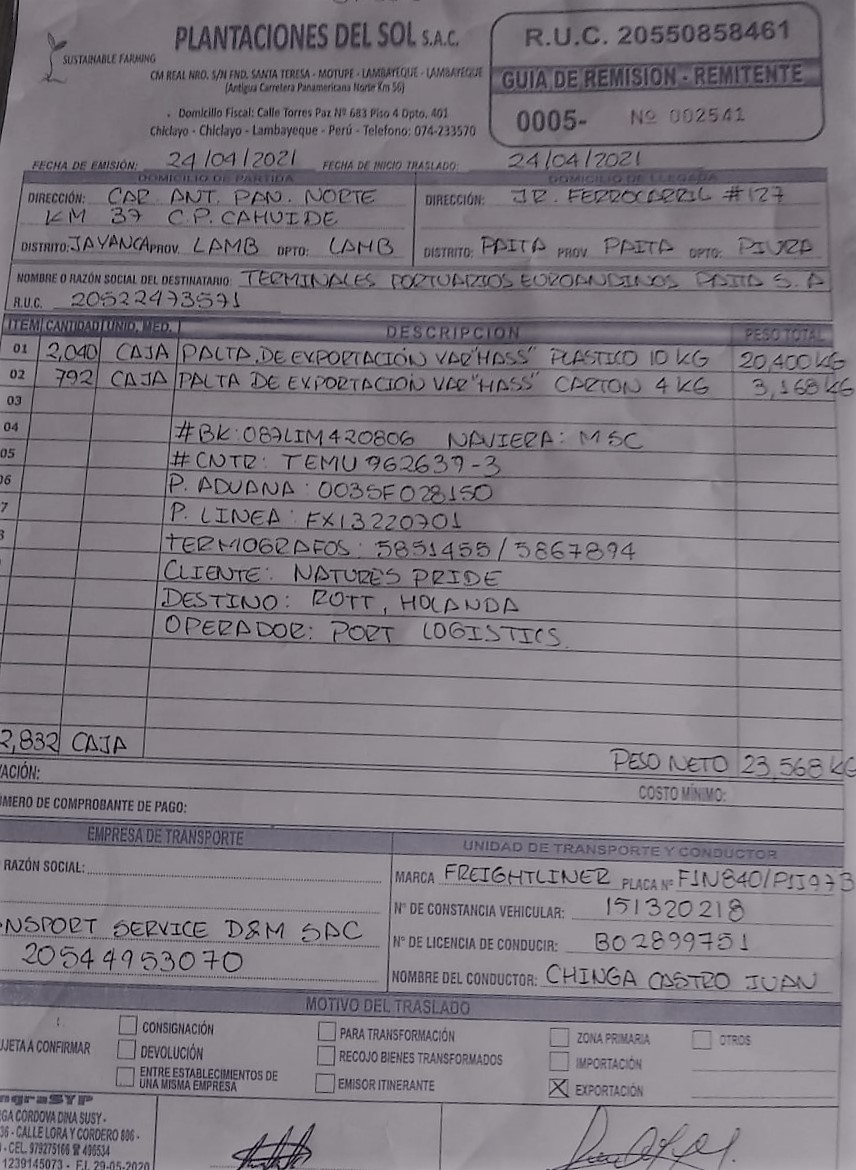 PLANTACIONES DEL SOL S.A.C.
SUSTAINABLE FARMING
CM REAL NRO. S/N FND. SANTA TERESA - MOTUPE - LAMBAYEQUE - LAMBAYEQUE
(Antigua Carretera Panamericana Norte Km 56)
Domicilio Fiscal: Calle Torres Paz Nº 683 Piso 4 Dpto. 401
Chiclayo - Chiclayo - Lambayeque - Perú - Telefono: 074-233570
R.U.C. 20550858461
GUIA DE REMISION - REMITENTE
0005- Nº 002541
FECHA DE EMISIÓN: 24/04/2021 FECHA DE INICIO TRASLADO: 24/04/2021
DOMICILIO DE PARTIDA
DIRECCIÓN: CAR. ANT. PAN. NORTE
KM 37 C.P. CAHUIDE
DISTRITO: JAYANCA PROV. LAMB DPTO: LAMB
DOMICILIO DE LLEGADA
DIRECCIÓN: JR. FERROCARRIL #127
DISTRITO: PAITA PROV PAITA DPTO: PIURA
NOMBRE O RAZÓN SOCIAL DEL DESTINATARIO: TERMINALES PORTUARIOS EUROANDINOS PAITA S.A
R.U.C. 20522473571
ITEM CANTIDAD UNID. MED. DESCRIPCION PESO TOTAL
01 2,040 CAJA PALTA DE EXPORTACIÓN VAR "HASS" PLASTICO 10 KG 20,400 KG
02 792 CAJA PALTA DE EXPORTACION VAR "HASS" CARTON 4 KG 3,168 KG
03
04 #BK: 087LIM420806 NAVIERA: MSC
05 #CNTR: TEMU 962639-3
06 P. ADUANA: 0035F028150
7 P. LINEA: FX13220701
8 TERMOGRAFOS: 5851455/5867894
CLIENTE: NATURES PRIDE
DESTINO: ROTT, HOLANDA
OPERADOR: PORT LOGISTICS.
2,832 CAJA PESO NETO 23,568 KG
VACIÓN: COSTO MÍNIMO:
ÚMERO DE COMPROBANTE DE PAGO:
EMPRESA DE TRANSPORTE
RAZÓN SOCIAL:
NSPORT SERVICE D&M SAC
20544953070
UNIDAD DE TRANSPORTE Y CONDUCTOR
MARCA FREIGHTLINER PLACA Nº F1N840/PIJ973
Nº DE CONSTANCIA VEHICULAR: 151320218
Nº DE LICENCIA DE CONDUCIR: B02899751
NOMBRE DEL CONDUCTOR: CHINGA CASTRO JUAN
MOTIVO DEL TRASLADO
UJETA A CONFIRMAR
CONSIGNACIÓN
DEVOLUCIÓN
ENTRE ESTABLECIMIENTOS DE
UNA MISMA EMPRESA
PARA TRANSFORMACIÓN
RECOJO BIENES TRANSFORMADOS
EMISOR ITINERANTE
ZONA PRIMARIA
IMPORTACIÓN
X EXPORTACIÓN
OTROS
ngraSYP
GA CORDOVA DINA SUSY -
36 - CALLE LORA Y CORDERO 806 -
- CEL. 979275166 ☎ 496534
1239145073 - F.I. 29-05-2020